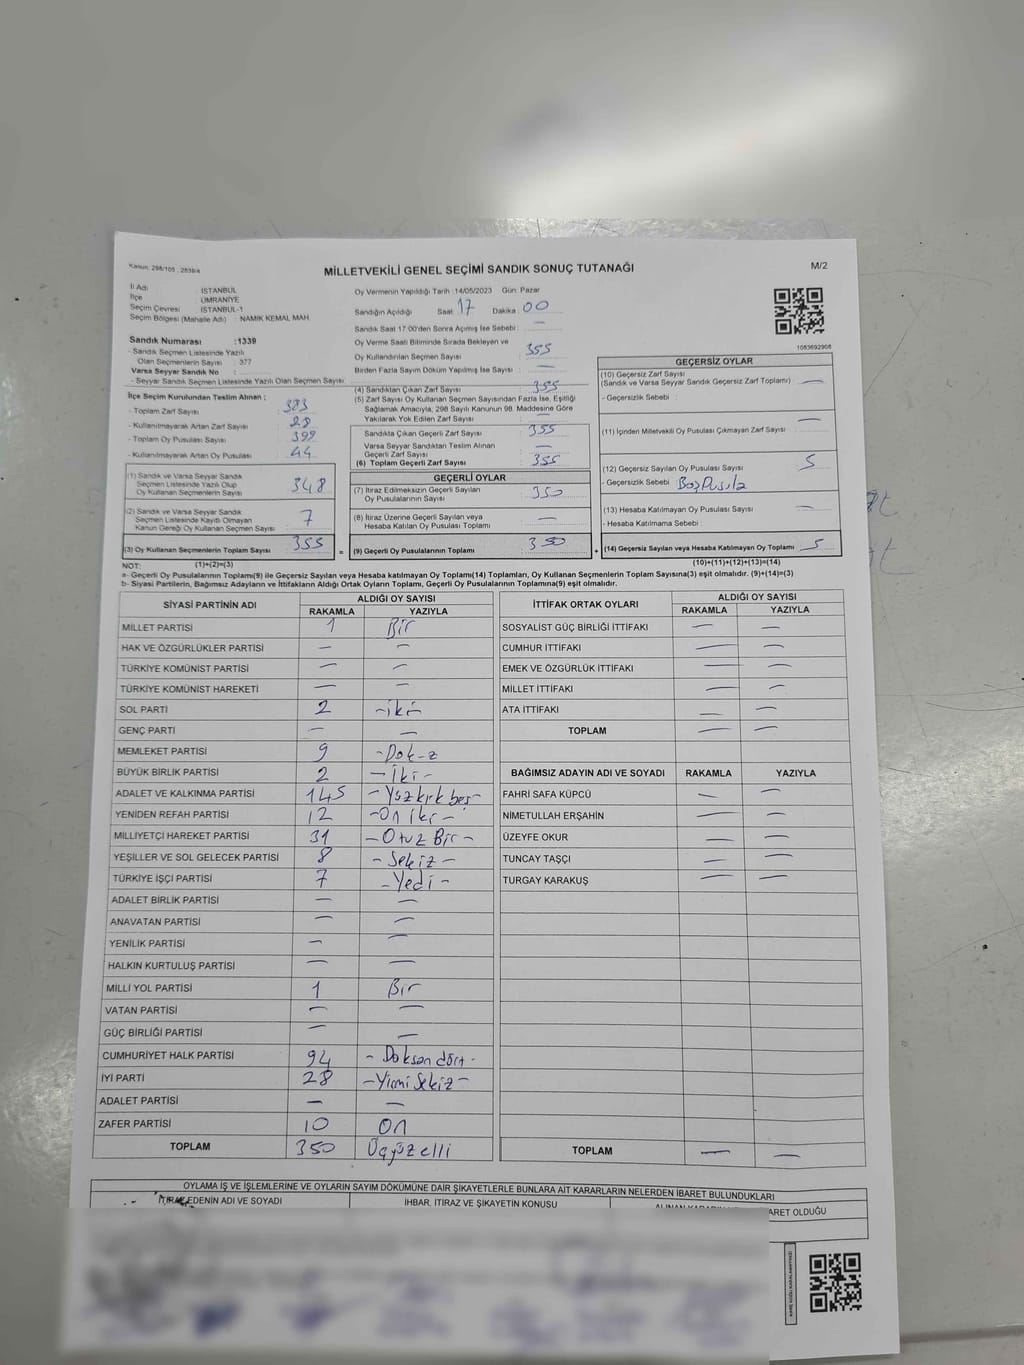 Kanun: 298/105 , 2839/4
MİLLETVEKİLİ GENEL SEÇİMİ SANDIK SONUÇ TUTANAĞI
M/2
İl Adı : İSTANBUL
İlçe : ÜMRANİYE
Seçim Çevresi : İSTANBUL-1
Seçim Bölgesi (Mahalle Adı) : NAMIK KEMAL MAH.
Oy Vermenin Yapıldığı Tarih :14/05/2023 Gün: Pazar
Sandığın Açıldığı Saat 17 Dakika 00
Sandık Saat 17:00'den Sonra Açımış İse Sebebi : —
Oy Verme Saati Bitiminde Sırada Bekleyen ve
Oy Kullandırılan Seçmen Sayısı 355
Birden Fazla Sayım Döküm Yapılmış İse Sayısı : —
1083692908
Sandık Numarası :1339
- Sandık Seçmen Listesinde Yazılı
Olan Seçmenlerin Sayısı : 377
Varsa Seyyar Sandık No :
- Seyyar Sandık Seçmen Listesinde Yazılı Olan Seçmen Sayısı :
İlçe Seçim Kurulundan Teslim Alınan ;
- Toplam Zarf Sayısı : 383
- Kullanılmayarak Artan Zarf Sayısı : 28
- Toplam Oy Pusulası Sayısı : 399
- Kullanılmayarak Artan Oy Pusulası : 44
(1) Sandık ve Varsa Seyyar Sandık
Seçmen Listesinde Yazılı Olup
Oy Kullanan Seçmenlerin Sayısı 348
(2) Sandık ve Varsa Seyyar Sandık
Seçmen Listesinde Kayıtlı Olmayan
Kanun Gereği Oy Kullanan Seçmen Sayısı 7
(3) Oy Kullanan Seçmenlerin Toplam Sayısı 355
(1)+(2)=(3)
(4) Sandıktan Çıkan Zarf Sayısı 355
(5) Zarf Sayısı Oy Kullanan Seçmen Sayısından Fazla İse, Eşitliği
Sağlamak Amacıyla, 298 Sayılı Kanunun 98. Maddesine Göre
Yakılarak Yok Edilen Zarf Sayısı : —
Sandıkta Çıkan Geçerli Zarf Sayısı 355
Varsa Seyyar Sandıktan Teslim Alınan
Geçerli Zarf Sayısı —
(6) Toplam Geçerli Zarf Sayısı 355
GEÇERLİ OYLAR
(7) İtiraz Edilmeksizin Geçerli Sayılan
Oy Pusulalarının Sayısı 350
(8) İtiraz Üzerine Geçerli Sayılan veya
Hesaba Katılan Oy Pusulası Toplamı —
= (9) Geçerli Oy Pusulalarının Toplamı 350
GEÇERSİZ OYLAR
(10) Geçersiz Zarf Sayısı
(Sandık ve Varsa Seyyar Sandık Geçersiz Zarf Toplamı) —
- Geçersizlik Sebebi :
(11) İçinden Milletvekili Oy Pusulası Çıkmayan Zarf Sayısı —
(12) Geçersiz Sayılan Oy Pusulası Sayısı 5
- Geçersizlik Sebebi : Boş Pusula
(13) Hesaba Katılmayan Oy Pusulası Sayısı —
- Hesaba Katılmama Sebebi :
+ (14) Geçersiz Sayılan veya Hesaba Katılmayan Oy Toplamı 5
(10)+(11)+(12)+(13)=(14)
NOT:
a- Geçerli Oy Pusulalarının Toplamı(9) ile Geçersiz Sayılan veya Hesaba katılmayan Oy Toplamı(14) Toplamları, Oy Kullanan Seçmenlerin Toplam Sayısına(3) eşit olmalıdır. (9)+(14)=(3)
b- Siyasi Partilerin, Bağımsız Adayların ve İttifakların Aldığı Ortak Oyların Toplamı, Geçerli Oy Pusulalarının Toplamına(9) eşit olmalıdır.
SİYASİ PARTİNİN ADI ALDIĞI OY SAYISI
RAKAMLA YAZIYLA
MİLLET PARTİSİ 1 Bir
HAK VE ÖZGÜRLÜKLER PARTİSİ — —
TÜRKİYE KOMÜNİST PARTİSİ — —
TÜRKİYE KOMÜNİST HAREKETİ — —
SOL PARTİ 2 -iki-
GENÇ PARTİ — —
MEMLEKET PARTİSİ 9
BÜYÜK BİRLİK PARTİSİ 2 -İki-
ADALET VE KALKINMA PARTİSİ 145 -Yüzkırk beş-
YENİDEN REFAH PARTİSİ 12 -On iki-
MİLLİYETÇİ HAREKET PARTİSİ 31 -Otuz Bir-
YEŞİLLER VE SOL GELECEK PARTİSİ 8 -Sekiz-
TÜRKİYE İŞÇİ PARTİSİ 7 -Yedi-
ADALET BİRLİK PARTİSİ — —
ANAVATAN PARTİSİ — —
YENİLİK PARTİSİ — —
HALKIN KURTULUŞ PARTİSİ — —
MİLLİ YOL PARTİSİ 1 Bir
VATAN PARTİSİ — —
GÜÇ BİRLİĞİ PARTİSİ — —
CUMHURİYET HALK PARTİSİ 94 -Doksan dört-
İYİ PARTİ 28 -Yirmi Sekiz-
ADALET PARTİSİ — —
ZAFER PARTİSİ 10 On
TOPLAM 350 Üçyüz elli
İTTİFAK ORTAK OYLARI ALDIĞI OY SAYISI
RAKAMLA YAZIYLA
SOSYALİST GÜÇ BİRLİĞİ İTTİFAKI — —
CUMHUR İTTİFAKI — —
EMEK VE ÖZGÜRLÜK İTTİFAKI — —
MİLLET İTTİFAKI — —
ATA İTTİFAKI — —
TOPLAM — —
BAĞIMSIZ ADAYIN ADI VE SOYADI RAKAMLA YAZIYLA
FAHRİ SAFA KÜPCÜ — —
NİMETULLAH ERŞAHİN — —
ÜZEYFE OKUR — —
TUNCAY TAŞÇI — —
TURGAY KARAKUŞ — —
TOPLAM — —
OYLAMA İŞ VE İŞLEMLERİNE VE OYLARIN SAYIM DÖKÜMÜNE DAİR ŞİKAYETLERLE BUNLARA AİT KARARLARIN NELERDEN İBARET BULUNDUKLARI
İTİRAZ EDENİN ADI VE SOYADI İHBAR, İTİRAZ VE ŞİKAYETİN KONUSU OLDUĞU